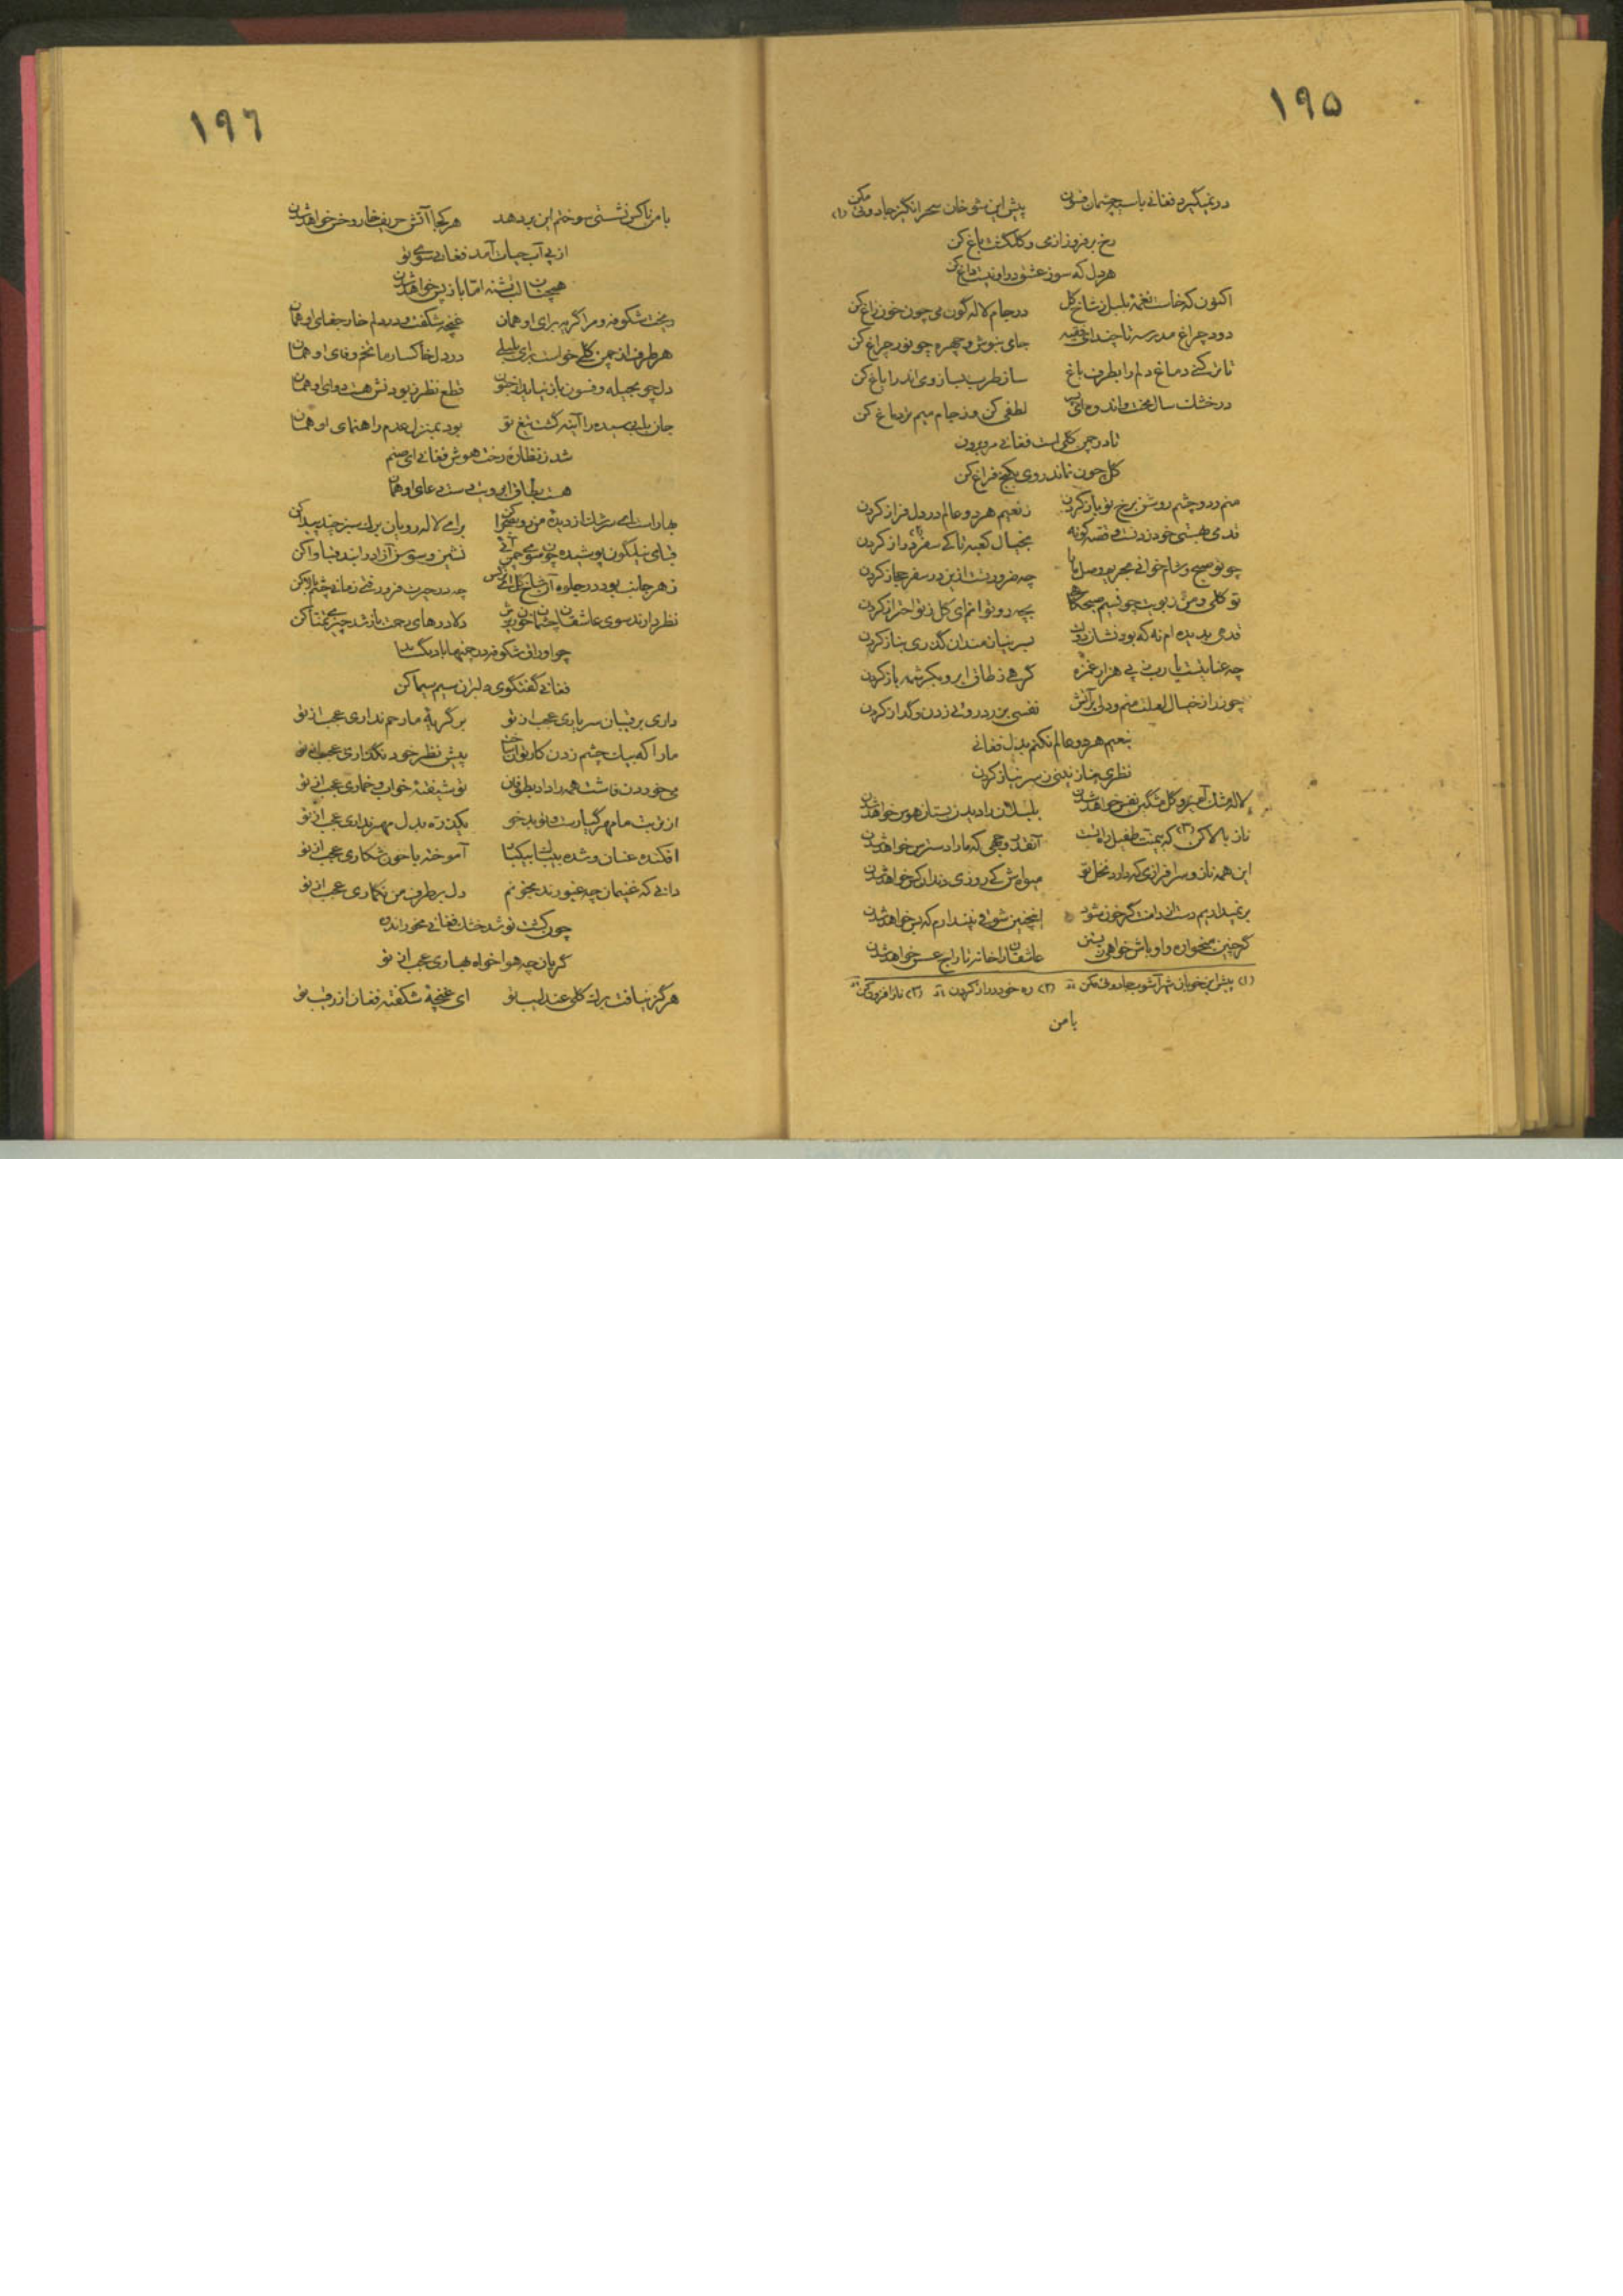 ۱۹۵
در نمیگیرد فغانی با سیه چشمان فسون پیش این شوخان سحر انگیز جادوئی مکن (۱)
رخ برفروز از می و گلگشت باغ کن
هر دل که سوز عشق در او نیست داغ کن
اکنون که خاست نغمهٔ بلبل ز شاخ گل در جام لاله گون می چون خون زاغ کن
دود چراغ مدرسه تا چند ای فقیه جامی بنوش و چهره چو نور چراغ کن
تازه کنی دماغ دلم را بطرف باغ ساز طرب بساز و می اندر ایاغ کن
در خشک سال محنت و اندوه لطفی کن و ز جام میم تر دماغ کن
تا در چمن گلی است فغانی مرو برون
گل چون نماند روی بکنج فراغ کن
منم و دو چشم روشن برخ تو باز کردن ز نعیم هر دو عالم در دل فراز کردن
قدمی ز هستی خود زدنست و قصه کوته بخیال کعبه تا کی سفر دراز کردن (۲)
چو تو صبح و شام خوانی بحریم وصل ما را چه ضرورتست ازین در سفر حجاز کردن
تو گلی و من ز بویت چو نسیم صبحگاهی بچه رو توانم ای گل ز تو احتراز کردن
قدمی بدیده ام نه که بود نشان دولت بسر نیازمندان گذری بناز کردن
چه عنایتست یا رب ز پی هزار غمزه گرهی ز طاق ابرو بکرشمه باز کردن
چو زر از خیال لعلت منم و دلی بر آتش نفسی بدرد روئی زدن و گداز کردن
بنعیم هر دو عالم نکنم بدل فغانی
نظری بنازنینی ز سر نیاز کردن
لاله مشک آمیز و گل مشکین نفس خواهد شدن بلبلان را دیدن بستان هوس خواهد شدن
ناز بالا کن (۳) که یمنت طفیل آنقدر رحمی که ما را دسترس خواهد شدن
این همه ناز و سرافرازی که دارد نخل تو میوه اش کی روزی دندان کس خواهد شدن
بر نمیداریم دست از دامنت گر خون شود اینچنین شوقی نپندارم که بس خواهد شدن
گر چنین میخواره و اوباش خواهی زیستن عاشقان را خانه تاراج عسس خواهد شدن
(۱) پیش این خوبان شهر آشوب جادوئی مکن (۲) ره خود دراز کردن (۳) ناز افزون کن
با من
۱۹٦
با من ناکس نشستی سوختم این بر دهد هر کجا آتش حریف خار و خس خواهد شدن
از پی آب حیات آمد فغانی سوی تو
همچنان لب تشنه اما باز پس خواهد شدن
ریخت شکوفه و مرا گریه برای او همان غنچه شکفت و در دلم خار جفای او همان
هر طرف از چمن گلی خواست برای بلبلی در دل خاکسار ما تخم وفای او همان
دل چو بحیله و فسون باز نیاید از جنون قطع نظر ز بودنش هست دوای او همان
جان بلب رسیده را آینه گشت تیغ تو بود بمنزل عدم راهنمای او همان
شد ز نظاره رخت هوش فغانی ای صنم
هست بطاق ابرویت دست دعای او همان
بهار است ای سرشک از دیدهٔ من رو بصحرا کن برای لاله رویان برگ سبزی چند پیدا کن
قبای نیلگون پوشیده چون سوی چمن آئی نشین و سوسن آزاد را بند قبا وا کن
ز هر جانب بود در جلوه آن شاخ گل ای نرگس چه در حیرت فرو رفتی زمانی چشم بالا کن
نظر دارند سوی عاشقان چشمان خونریزش دلا درهای رحمت باز شد چیزی تمنا کن
چو اوراق شکوفه در چمنها باد یکتا
فغانی گفتگوی دلبران سیم سیما کن
داری برقیبان سر یاری عجب از تو بر گریهٔ ما رحم نداری عجب از تو
ما را که بیک چشم زدن کار توان ساخت پیش نظر خود نگذاری عجب از تو
می خوردن فاشت همه را داد بطوفان تو شیفتهٔ خواب و خماری عجب از تو
از تربیت ما مهر گیا رست و تو بدخو یکذره بدل مهر نداری عجب از تو
افکنده عنان و شده بیباک بیکبار آموخته با خون شکاری عجب از تو
دانی که غنیمان چه غیورند بخونم دل بر طرف من نگماری عجب از تو
چون کشت تو شد خشک فغانی مخور انده
گریان چه هوا خواه بهاری عجب از تو
هرگز نیافت برگ گلی عندلیب تو ای غنچهٔ شکفته فغان از رقیب تو